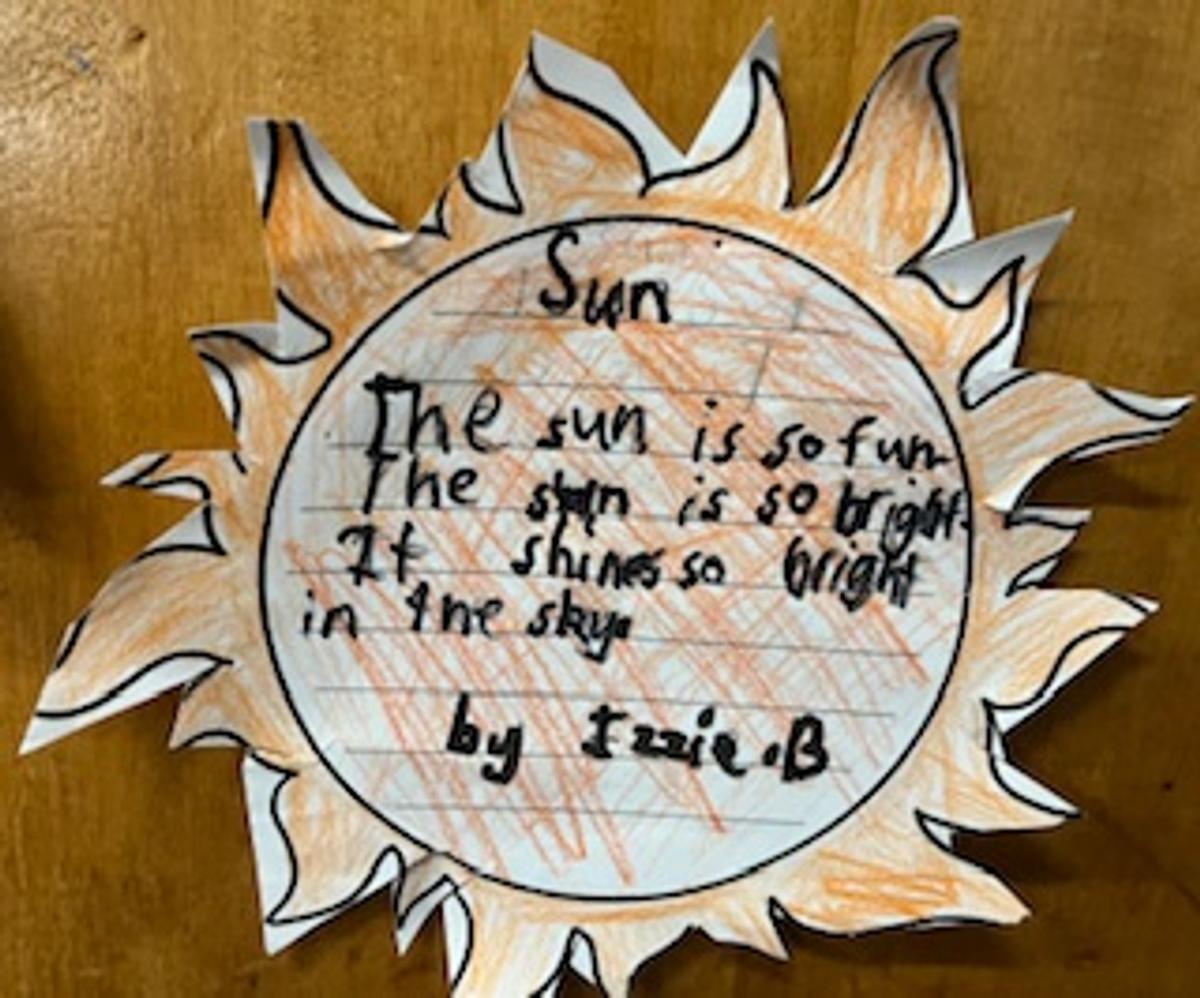 Sun
The sun is so fun
The sun is so bright.
It shines so bright
in the sky.
by Izzie.B